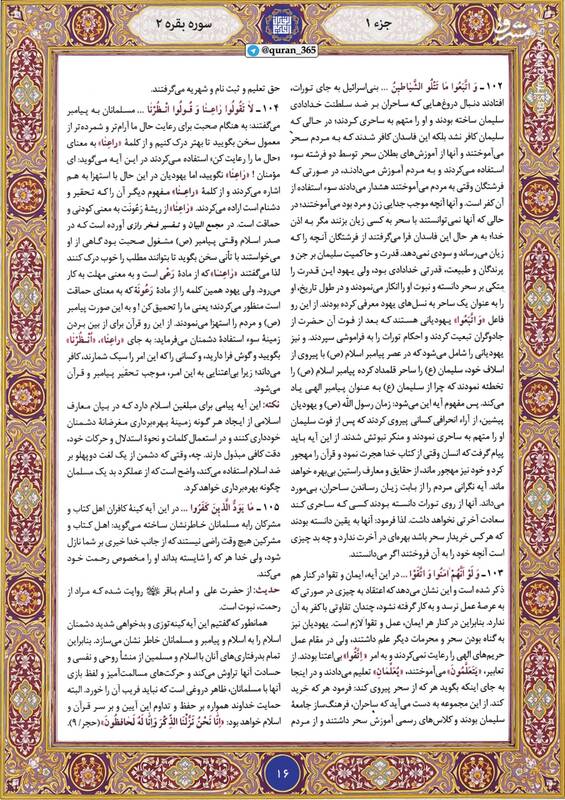 جزء ۱
سوره بقره ۲
@quran_365
مشرق
۱۰۲ـ وَ اتَّبَعُوا مَا تَتْلُو الشَّيَاطِينُ ... بنی‌اسرائیل به جای تورات،
افتادند دنبال دروغ‌هایی که ساحران بر ضد سلطنت خدادادی
سلیمان ساخته بودند و او را متهم به ساحری کردند؛ در حالی که
سلیمان کافر نشد بلکه این فاسدان کافر شدند که به مردم سحر
می‌آموختند و آنها از آموزش‌های بطلان سحر توسط دو فرشته سوء
استفاده می‌کردند و به مردم آموزش می‌دادند، در صورتی که
فرشتگان وقتی به مردم می‌آموختند هشدار می‌دادند سوء استفاده از
آن کفر است. و آنها آنچه موجب جدایی زن و مرد بود می‌آموختند؛ در
حالی که آنها نمی‌توانستند با سحر به کسی زیان بزنند مگر به اذن
خدا؛ به هر حال این فاسدان فرا می‌گرفتند از فرشتگان آنچه را که
زیان می‌رساند و سودی نمی‌دهد. قدرت و حاکمیت سلیمان بر جن و
پرندگان و طبیعت، قدرتی خدادادی بود، ولی یهود این قدرت را
متکی بر سحر دانسته و نبوت او را انکار می‌نمودند و در طول تاریخ، او
را به عنوان یک ساحر به نسل‌های یهود معرفی کرده بودند. از این رو
فاعل «وَ اتَّبَعُوا» یهودیانی هستند که بعد از فوت آن حضرت از
جادوگران تبعیت کردند و احکام تورات را به فراموشی سپردند. و نیز
یهودیانی را شامل می‌شود که در عصر پیامبر اسلام (ص) با پیروی از
اسلاف خود، سلیمان (ع) را ساحر قلمداد کرده پیامبر اسلام (ص) را
تخطئه نمودند که چرا از سلیمان (ع) به عنوان پیامبر الهی یاد
می‌کند. پس مفهوم آیه این می‌شود: زمان رسول الله (ص) و یهودیان
پیشین، از آراء انحرافی کسانی پیروی کردند که پس از فوت سلیمان
او را متهم به ساحری نمودند و منکر نبوتش شدند. از این آیه باید
پیام گرفت که انسان وقتی از کتاب خدا هجرت نمود و قرآن را مهجور
کرد و خود نیز مهجور ماند، از حقایق و معارف راستین بی‌بهره خواهد
ماند. آیه نگرانی مردم را از بابت زیان رساندن ساحران، بی‌مورد
می‌داند. آنها از روی تورات دانسته بودند کسی که ساحری کند
سعادت آخرتی نخواهد داشت. لذا فرمود: آنها به یقین دانسته بودند
که هر کس خریدار سحر باشد بهره‌ای در آخرت ندارد و چه بد چیزی
است آنچه خود را به آن فروختند اگر می‌دانستند.
۱۰۳ـ وَ لَوْ أَنَّهُمْ آمَنُوا وَ اتَّقَوْا ... در این آیه، ایمان و تقوا در کنار هم
ذکر شده است و این نشان می‌دهد که اعتقاد به چیزی در صورتی که
به عرصهٔ عمل نرسد و به کار گرفته نشود، چندان تفاوتی با کفر به آن
ندارد. بنابراین در کنار هر ایمان، عمل و تقوا لازم است. یهودیان نیز
به گناه بودن سحر و محرمات دیگر علم داشتند، ولی در مقام عمل
حریم‌های الهی را رعایت نمی‌کردند و به امر «اِتَّقُوا» بی‌اعتنا بودند. از
تعابیر، يَتَعَلَّمُونَ می‌آموختند، «يُعَلِّمَانِ» تعلیم می‌دادند و در اینجا
به جای اینکه بگوید هر که از سحر پیروی کند؛ فرمود هر که خرید
کند. از این مجموعه به دست می‌آید که ساحران، فرهنگ‌ساز جامعهٔ
سلیمان بودند و کلاس‌های رسمی آموزش سحر داشتند و از مردم
حق تعلیم و ثبت نام و شهریه می‌گرفتند.
۱۰۴ـ لَا تَقُولُوا رَاعِنَا وَ قُولُوا انْظُرْنَا ... مسلمانان به پیامبر
می‌گفتند: به هنگام صحبت برای رعایت حال ما آرام‌تر و شمرده‌تر از
معمول سخن بگویید تا بهتر درک کنیم و از کلمهٔ «رَاعِنَا» به معنای
«حال ما را رعایت کن» استفاده می‌کردند. در این آیه می‌گوید: ای
مؤمنان ! «رَاعِنَا» نگویید، اما یهودیان در این حال با استهزا به هم
اشاره می‌کردند و از کلمهٔ «رَاعِنَا» مفهوم دیگر آن را که تحقیر و
دشنام است اراده می‌کردند. «رَاعِنَا» از ریشهٔ رَعُونَت به معنی کودنی و
حماقت است. در مجمع البیان و تفسیر فخر رازی آورده است که در
صدر اسلام وقتی پیامبر (ص) مشغول صحبت بود گاهی از او
می‌خواستند با تأنی سخن بگوید تا بتوانند مطلب را خوب درک کنند
لذا می‌گفتند «رَاعِنَا» که از مادهٔ رَعْی است و به معنی مهلت به کار
می‌رود. ولی یهود همین کلمه را از مادهٔ رَعُونَة که به معنای حماقت
است منظور می‌کردند؛ یعنی ما را تحمیق کن! و به این صورت پیامبر
(ص) و مردم را استهزا می‌نمودند. از این رو قرآن برای از بین بردن
زمینهٔ سوء استفادهٔ دشمنان می‌فرماید: به جای «رَاعِنَا»، «اُنْظُرْنَا»
بگویید و گوش فرا دارید، و کسانی را که این امر را سبک شمارند، کافر
می‌داند؛ زیرا بی‌اعتنایی به این امر، موجب تحقیر پیامبر و قرآن
می‌شود.
نکته: این آیه پیامی برای مبلغین اسلام دارد که در بیان معارف
اسلامی از ایجاد هر گونه زمینهٔ بهره‌برداری مغرضانهٔ دشمنان
خودداری کنند و در استعمال کلمات و نحوهٔ استدلال و حرکات خود،
دقت کافی مبذول دارند. چه، وقتی که دشمن از یک لغت دو پهلو بر
ضد اسلام استفاده می‌کند، واضح است که از عملکرد بد یک مسلمان
چگونه بهره‌برداری خواهد کرد.
۱۰۵ـ مَا يَوَدُّ الَّذِينَ كَفَرُوا ... در این آیه کینهٔ کافران اهل کتاب و
مشرکان را به مسلمانان خاطرنشان ساخته می‌گوید: اهل کتاب و
مشرکین هیچ وقت راضی نیستند که از جانب خدا خیری بر شما نازل
شود، ولی خدا هر که را شایسته بداند او را مخصوص رحمت خود
می‌کند.
حدیث: از حضرت علی و امام باقر روایت شده که مراد از
رحمت، نبوت است.
همانطور که گفتیم این آیه کینه‌توزی و بدخواهی شدید دشمنان
اسلام را به اسلام و پیامبر و مسلمانان خاطر نشان می‌سازد. بنابراین
تمام بدرفتاری‌های آنان با اسلام و مسلمین از منشأ روحی و نفسی و
حسادت آنها تراوش می‌کند و حرکت‌های مسالمت‌آمیز و لفظ بازی
آنها با مسلمانان، ظاهر دروغی است که نباید فریب آن را خورد. البته
حمایت خداوند همواره بر حفظ و تداوم این آیین و بر سر قرآن و
اسلام خواهد بود: «إِنَّا نَحْنُ نَزَّلْنَا الذِّكْرَ وَإِنَّا لَهُ لَحَافِظُونَ» (حجر/ ۹).
۱۶